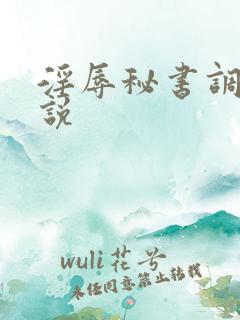 淫辱秘书調
説
wuli花兮
未任同意禁止转载